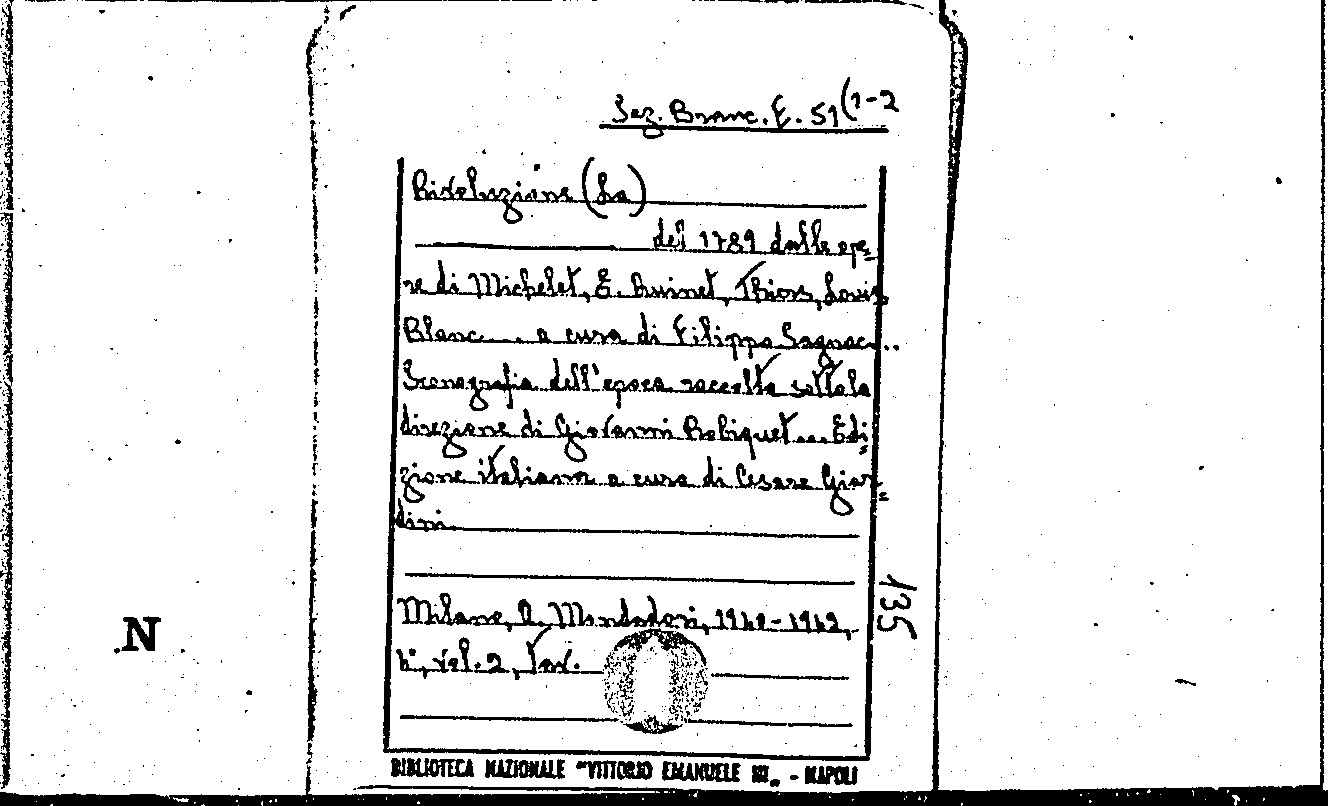 Sez. Branc. E. 51(1-2
Rivoluzione (La)
del 1789 dalle ope=
re di Michelet, E. Quinet, Thiers, Louis
Blanc.... a cura di Filippo Sagnac...
Iconografia dell'epoca raccolta sotto la
direzione di Giovanni Robiquet... Edi=
zione italiana a cura di Cesare Giar=
dini.
Milano, A. Mondadori,
4°, vol. 2, tav.
135
N
BIBLIOTECA NAZIONALE "VITTORIO EMANUELE III„ - NAPOLI